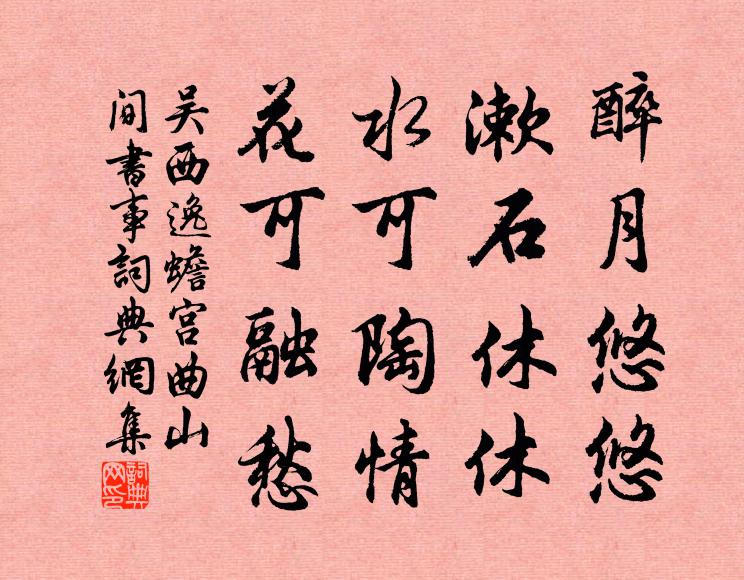 醉月悠悠
漱石休休
水可陶情
花可融愁
吴西逸蟾宫曲山
间書事詞典網集
詞典网印